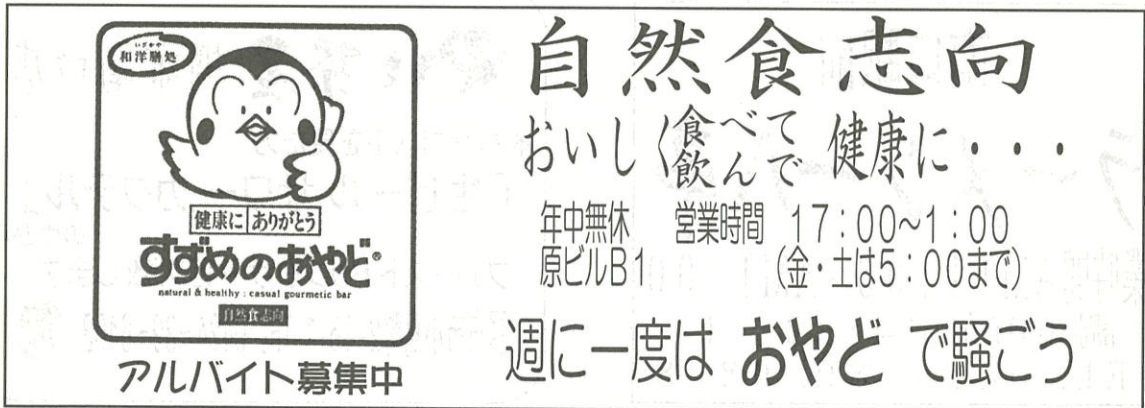 いざかや
和洋膳処
健康に ありがとう
すずめのおやど®
natural & healthy : casual gourmetic bar
自然食志向
アルバイト募集中
自然食志向
おいしく食べて飲んで 健康に・・・
年中無休 営業時間 17:00~1:00
原ビルB1 (金・土は5:00まで)
週に一度は おやど で騒ごう